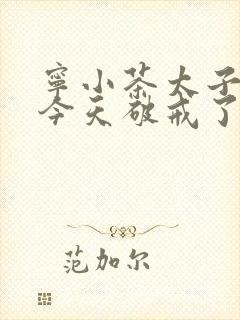 寧小茶太子
今天破戒了
范加尔